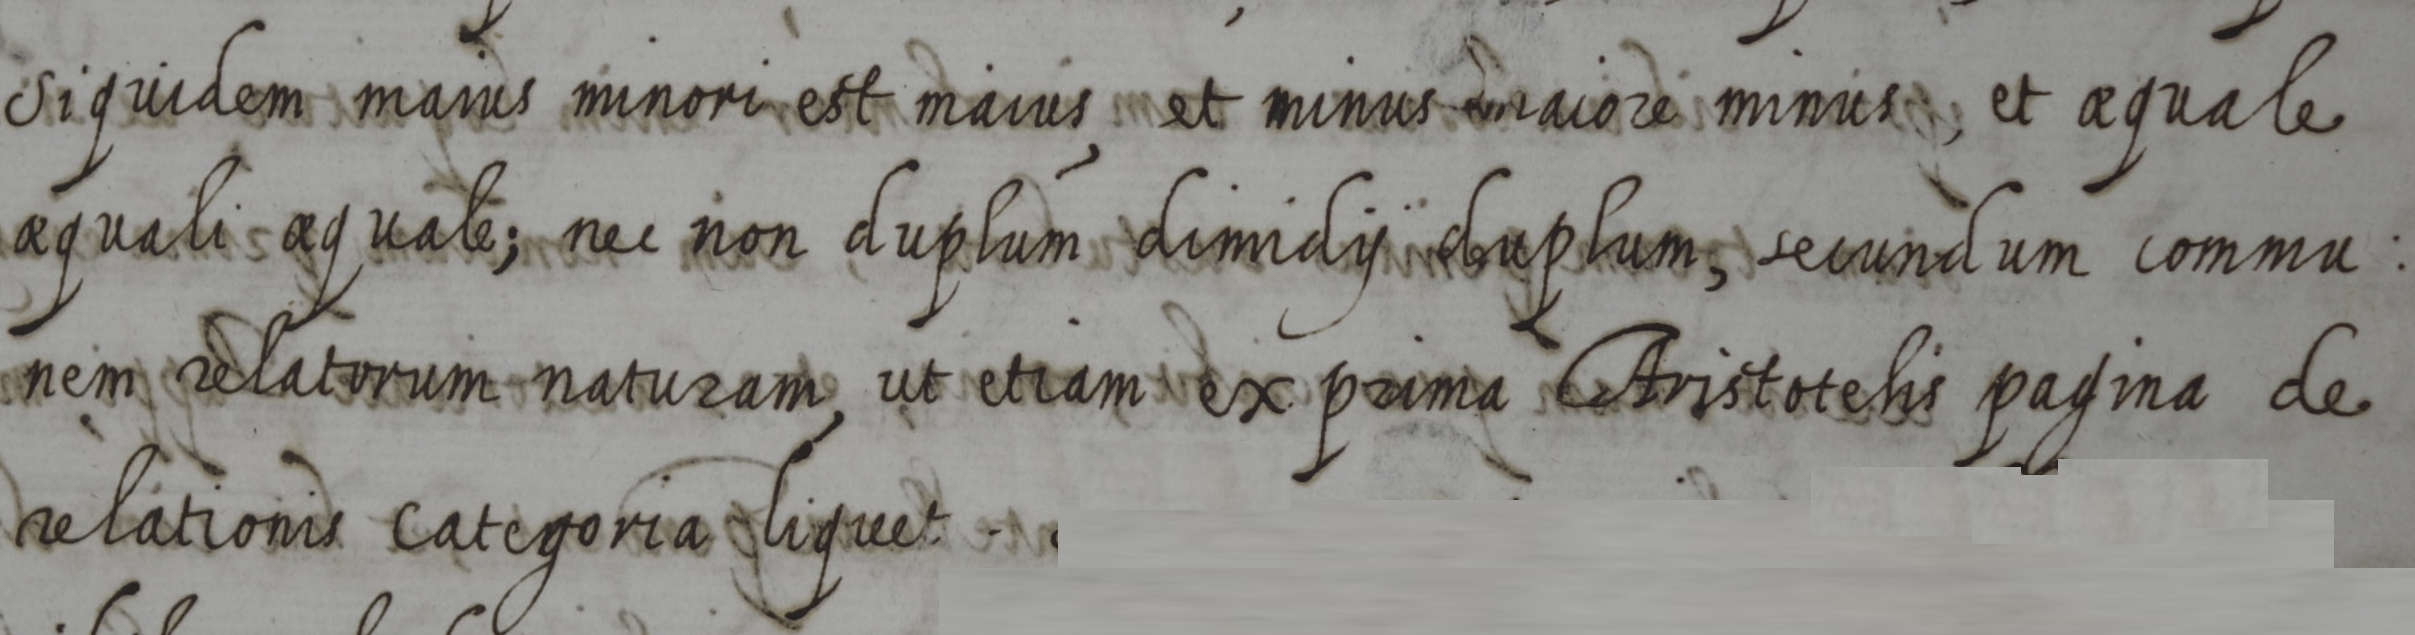 siquidem maius minori est maius, et minus maiore minus, et æquale
æquali æquale; nec non duplum dimidij duplum, secundum commu:
nem relatorum naturam, ut etiam ex prima Aristotelis pagina de
relationis categoria liquet.